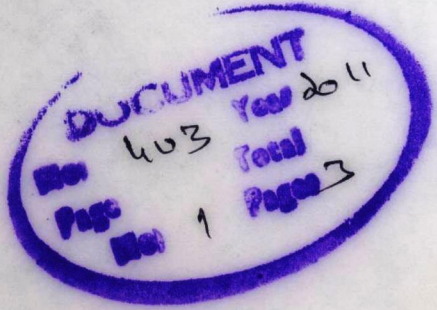 DOCUMENT
No: 403 Year 2011
Page No: 1 Total Pages 3